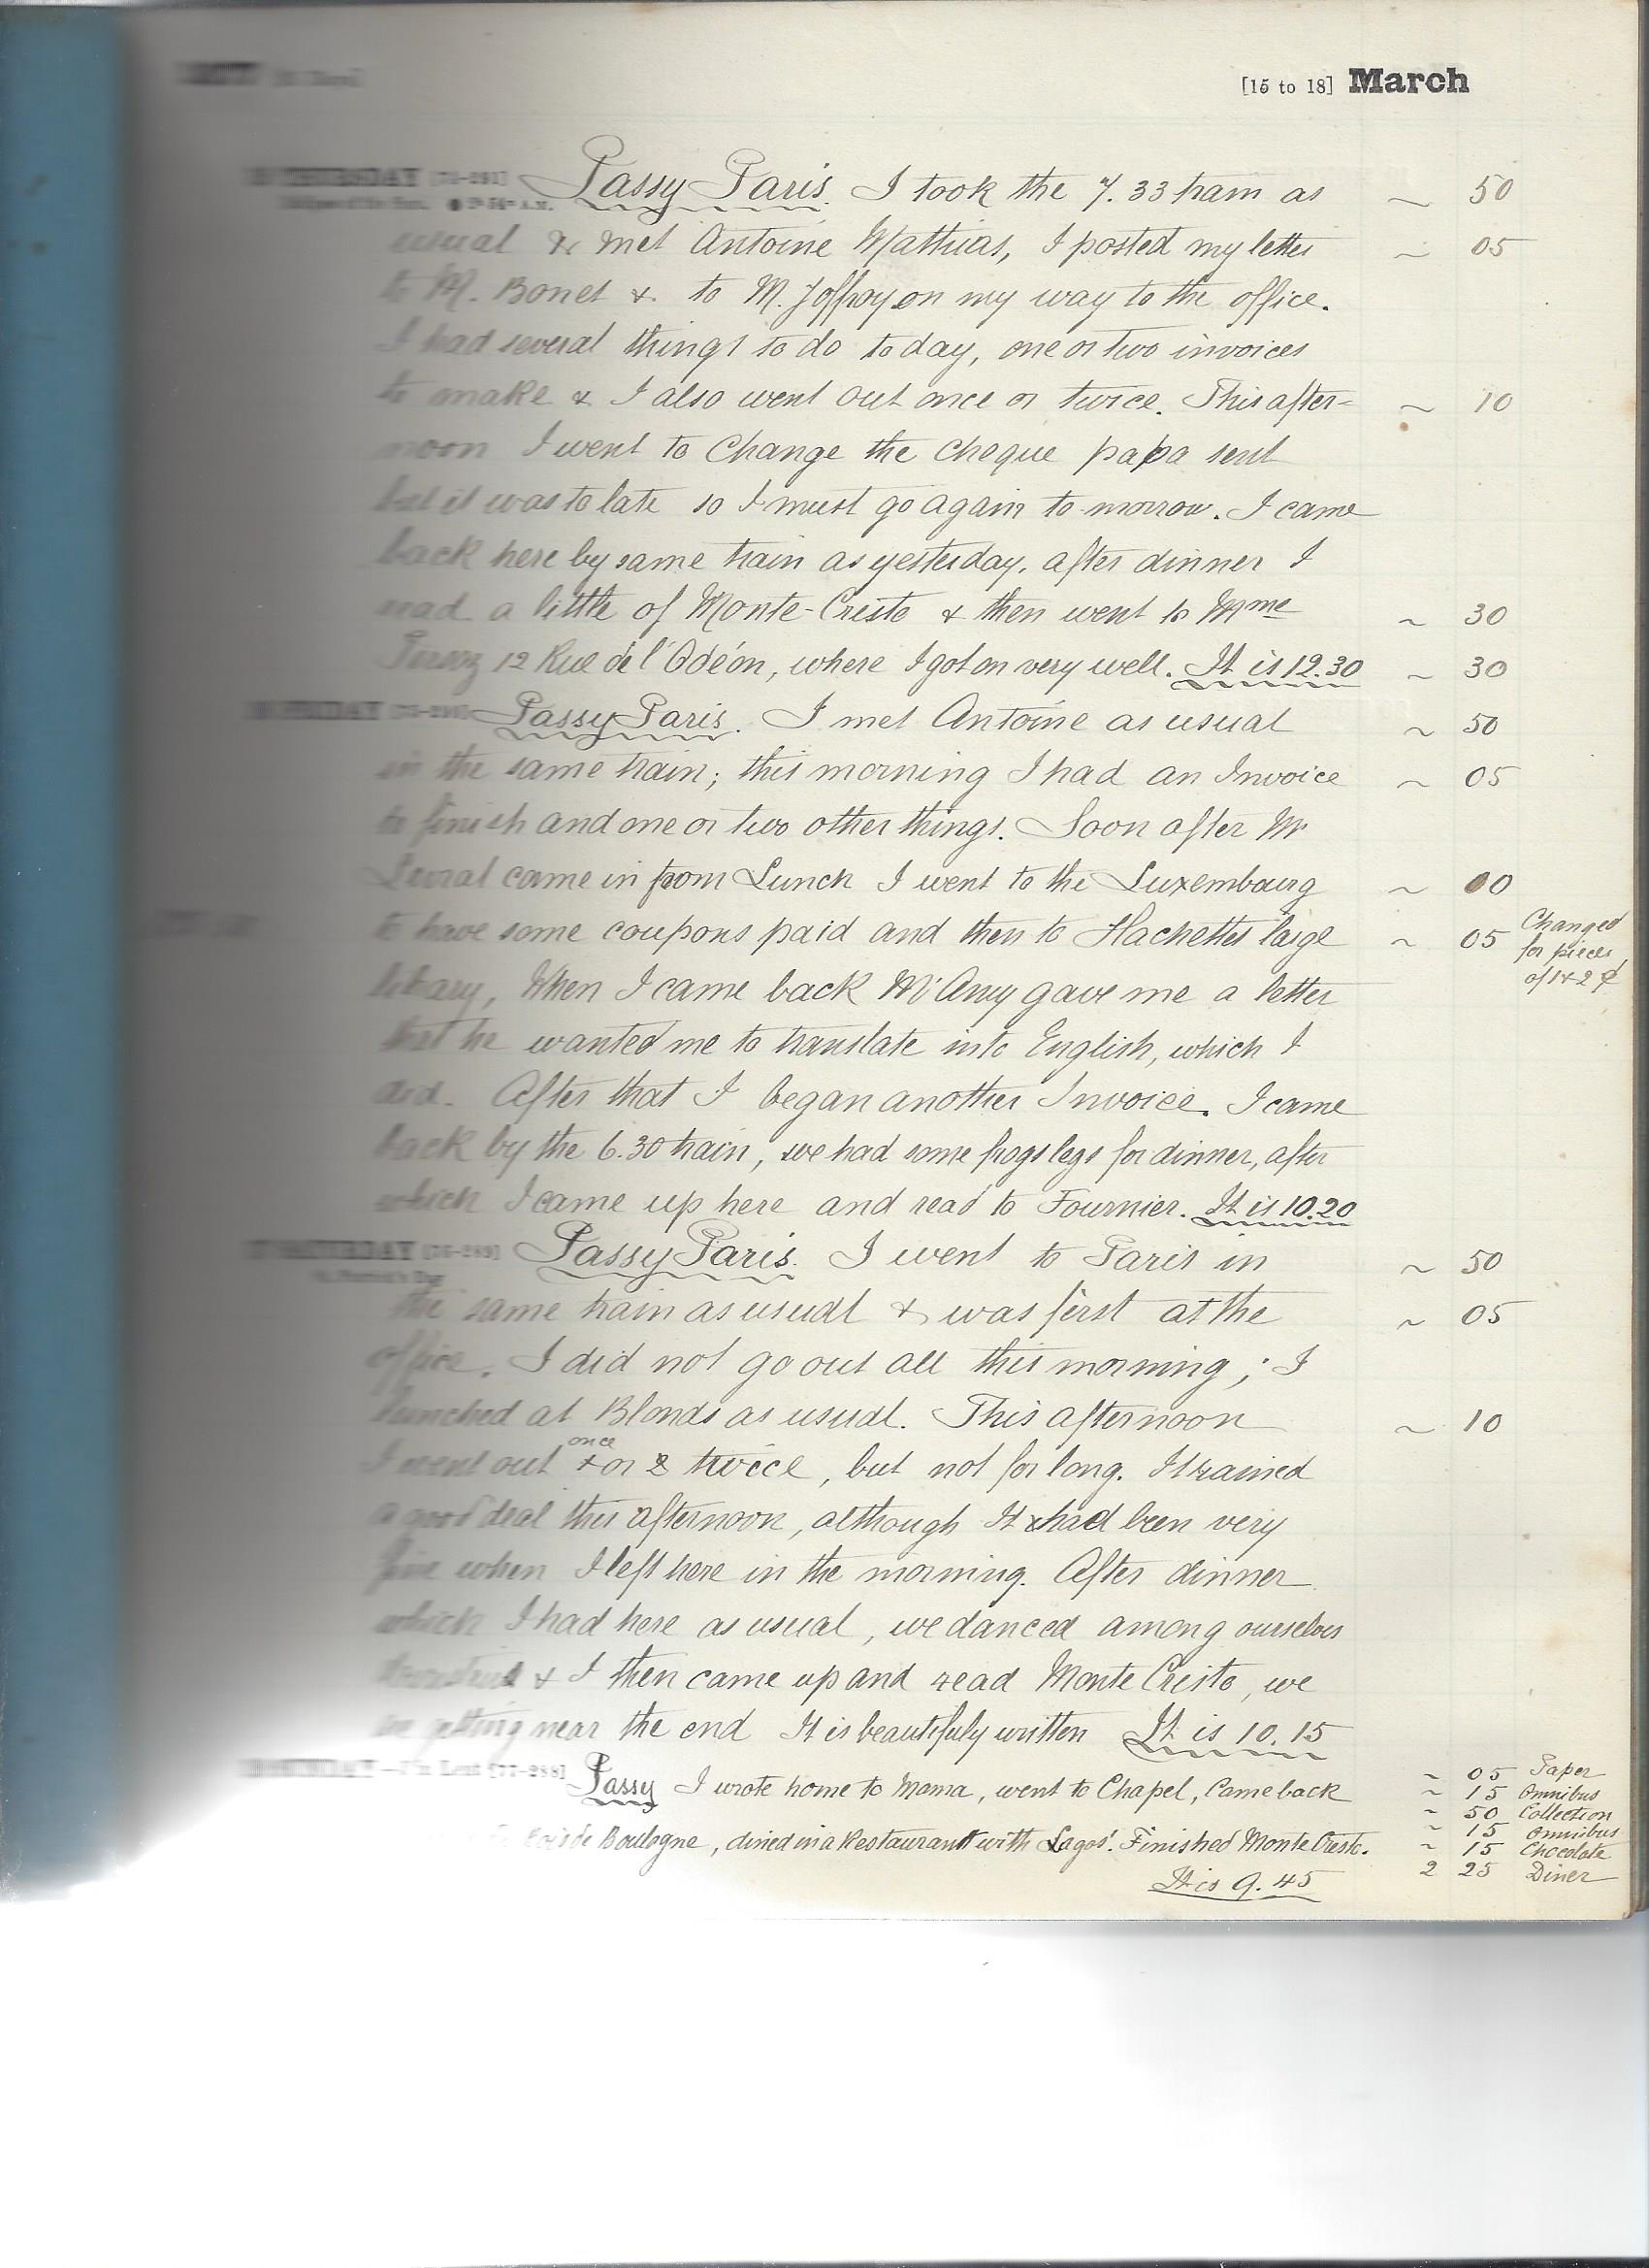 [15 to 18] March
THURSDAY [74-291] Passy Paris. I took the 7.33 tram as ~ 50
usual & met Antoine Mathias, I posted my letter ~ 05
to M. Bonet & to M. Joffroy on my way to the office.
I had several things to do to day, one or two invoices
to make & I also went out once or twice. This after= ~ 10
noon I went to Change the cheque papa sent
but it was to late so I must go again to-morrow. I came
back here by same train as yesterday. after dinner I
read a little of Monte-Cristo & then went to Mme ~ 30
12 Rue de l'Odéon, where I got on very well. It is 12.30 ~ 30
FRIDAY Passy Paris. I met Antoine as usual ~ 50
in the same train; this morning I had an Invoice ~ 05
to finish and one or two other things. Soon after Mr
came in from Lunch I went to the Luxembourg ~ 00
to have some coupons paid and then to Hachettes large ~ 05 Changed for pieces of 1 & 2 ¢
library, When I came back Mr Amy gave me a letter
that he wanted me to translate into English, which I
did. After that I began another Invoice. I came
back by the 6.30 train, we had some frogs legs for dinner, after
which I came up here and read to Fournier. It is 10.20
SATURDAY Passy Paris. I went to Paris in ~ 50
the same train as usual & was first at the ~ 05
office. I did not go out all this morning; I
lunched at Blonds as usual. This afternoon ~ 10
I went out once or twice, but not for long. It rained
a good deal this afternoon, although It had been very
fine when I left here in the morning. After dinner
which I had here as usual, we danced among ourselves
& I then came up and read Monte Cristo, we
are getting near the end It is beautifuly written It is 10.15
SUNDAY - in Lent [77-288] Passy I wrote home to Mama, went to Chapel, Came back
Bois de Boulogne, dined in a Restaurant with Lagos'. Finished Monte Cristo.
It is 9.45
~ 05 Paper
~ 15 Omnibus
~ 50 Collection
~ 15 Omnibus
~ 15 Chocolate
2 25 Diner